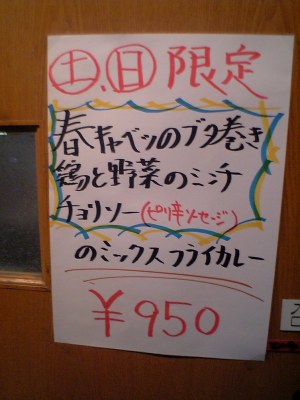 土、日 限定
春キャベツのブタ巻き
鶏と野菜のミンチ
チョリソー(ピリ辛ソーセージ)
のミックスフライカレー
¥950